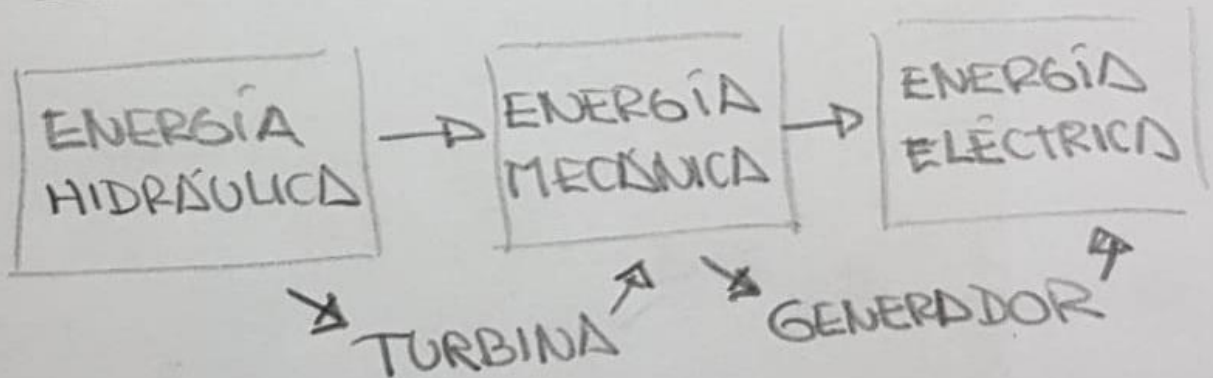 ENERGÍA
HIDRÁULICA
ENERGÍA
MECÁNICA
ENERGÍA
ELÉCTRICA
TURBINA
GENERADOR